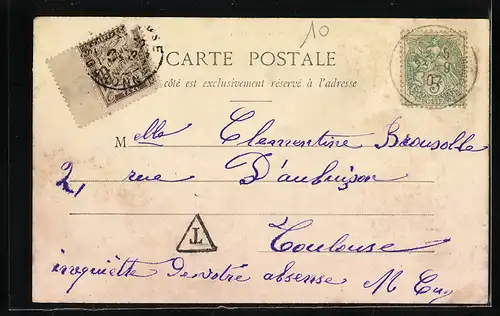 10
CARTE POSTALE
côté est exclusivement réservé à l'adresse
Melle Clementine Brousolle
2, rue D'aubuison
T
Toulouse
inquiètte De votre absense M